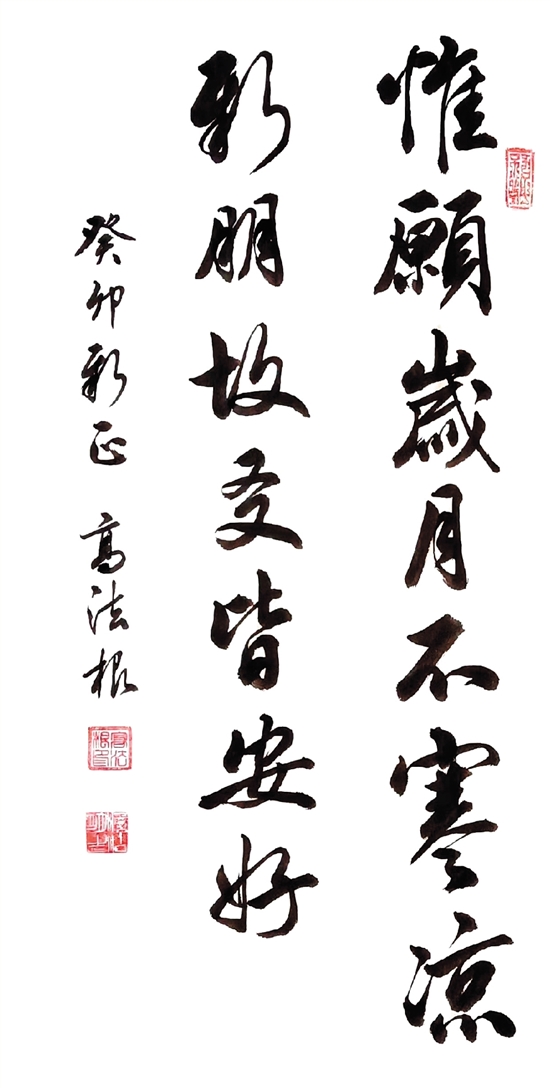 惟願歲月不寒涼
新朋故友皆安好
癸卯新正 高法根